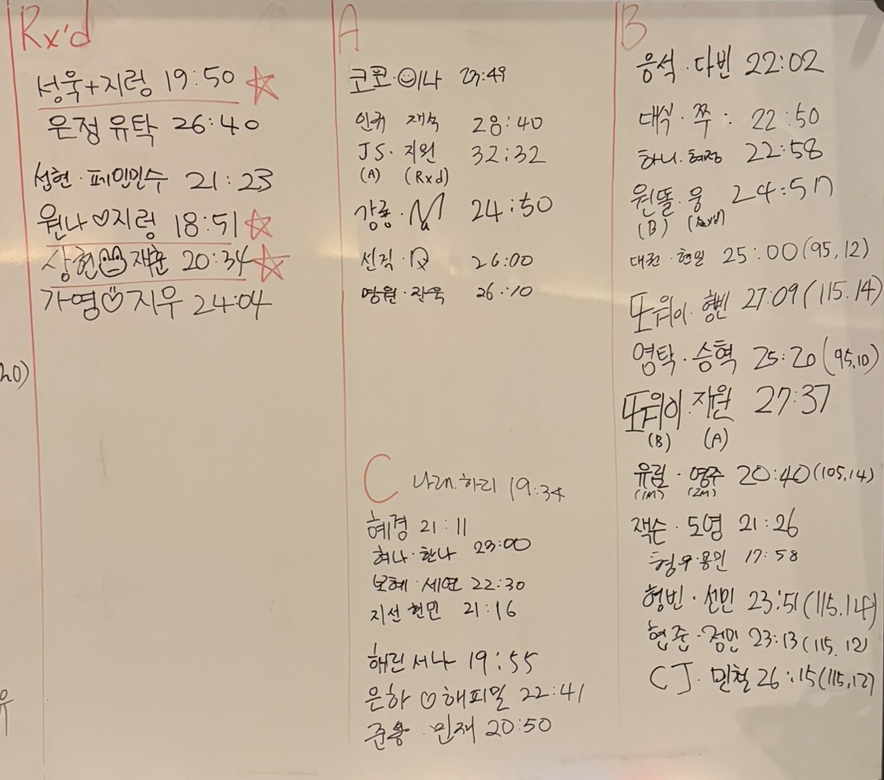 Rx'd
성욱+지렁 19:50
은정 유탁 26:40
섭현·페인민수 21:23
원나♡지렁 18:51
상현 재훈 20:34
가영♡지우 24:04
20)
A
코코·☺이나 23:49
인귀 재석 28:40
JS·지원 32:32
(A) (Rxd)
강룡· 24:50
선직·Q 26:00
영원·찬욱 26:10
C 나래.하리 19:34
혜경 21:11
혀나·한나 23:00
보혜·세연 22:30
지선 현민 21:16
해린 서나 19:55
은하♡해피밀 22:41
준용·민재 20:50
B
응석·다빈 22:02
대식·쭈: 22:50
하니.혜정 22:58
원똘·웅 24:57
(B) (Rxd)
대전·현일 25:00(95,12)
또위이·형빈 27:09(115.14)
영탁·승혁 25:20(95,10)
또위이.지원 27:37
(B) (A)
유림·영주 20:40(105,14)
(1M) (2M)
잭슨·도영 21:26
형우·용민 17:58
형빈·선민 23:51(115.14)
현준·정민 23:13(115,12)
CJ·민철 26:15(115,12)
유